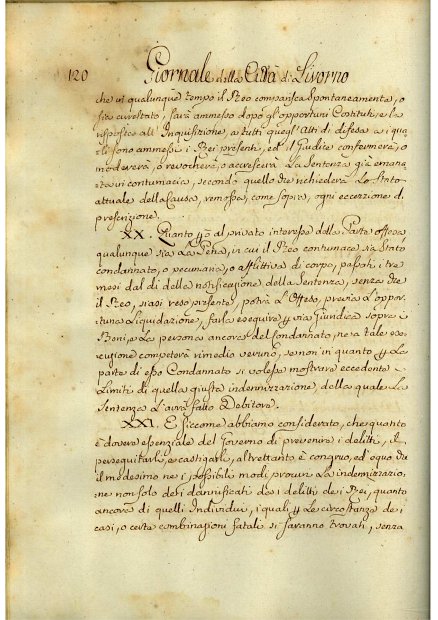 120 Giornale della Città di Livorno
che in qualunque tempo il Reo comparisca Spontaneamente, o
sia catturato, sarà ammesso dopo gl'opportuni Costituti, e la
risposta all'Inquisizione, a tutti quegl'atti di difesa a i qua
li sono ammessi i Rei presenti, ed il Giudice confermerà, o
modererà, o revocherà, o accrescerà La Sentenza già emana
ta in contumacia, secondo quello che richiederà Lo Stato
attuale della Causa, remossa, come sopra, ogni eccezione di
prescrizione.
XX. Quanto p̱ al privato interesse della Parte offesa
qualunque sia La Pena, in cui il Reo contumace sia Stato
condannato, o pecuniaria, o afflittiva di corpo, passati i tre
mesi dal dì della notificazione della Sentenza, senza che
il Reo, siasi reso presente, potrà L'Offeso, previa L'oppor
tuna Liquidazione, farla eseguire p̱ via Giudiciale sopra i
Beni, e La persona ancora del Condannato, ne a tale ese
cuzione competerà rimedio veruno, se non in quanto p̱ La
parte di esso Condannato si volesse mostrare eccedente i
Limiti di quella giusta indennizzazione, della quale La
Sentenza L'avrà fatto Debitore.
XXI. E siccome abbiamo considerato, che quanto
è dovere essenziale del Governo di prevenire i delitti, il
perseguitarli, e castigarli, altrettanto è congruo, ed equo che
il medesimo ne i possibili modi procuri La indennizzazio
ne non solo dei dannificati da i delitti de i Rei, quanto
ancora di quelli Individui, i quali p̱ Le circostanze de i
casi, o certe combinazioni fatali si saranno trovati, senza